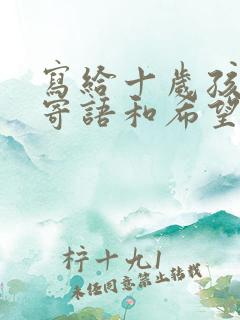 寫給十歲孩
寄語和希望
梓十九1
未經同意禁止轉載